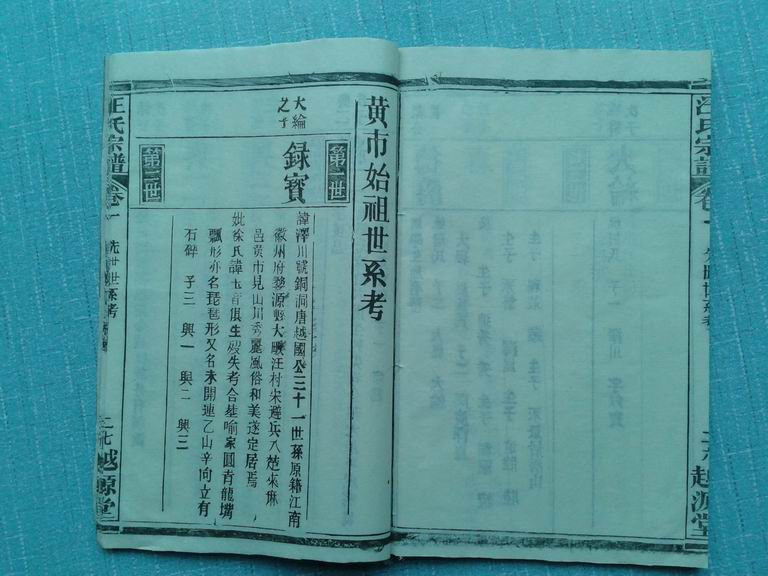 汪氏宗譜
卷一
越源堂
黄市始祖世系考
第二世
録寳
大綸
之子
第三世
諱澤川號銅澗唐越國公三十一世孫原籍江南
徽州府婺源縣大畈汪村宋避兵入楚來麻
邑黄市見山川秀麗風俗和美遂定居焉
妣徐氏諱玉音俱生殁失考合塟喻家圓青龍嘴
瓢形亦名琵琶形又名水開連乙山辛向立有
石碑 子三 興一 興二 興三
汪氏宗譜
卷一
先世世系考
二七
越源堂